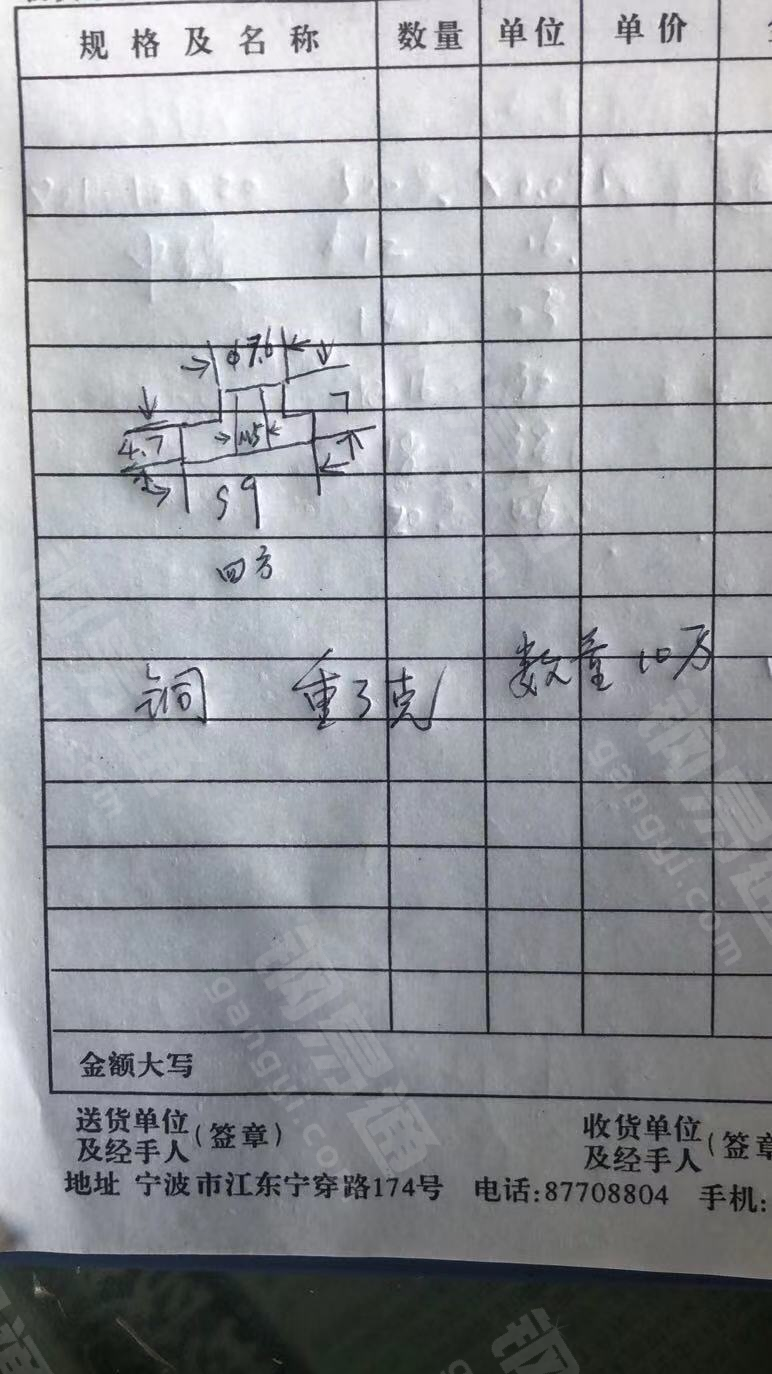 规格及名称 数量 单位 单价
φ7.6
7
4.7 M5
S9
四方
铜 重3克 数量10万
金额大写
送货单位及经手人(签章) 收货单位及经手人(签章
地址 宁波市江东宁穿路174号 电话:87708804 手机:
钢易通
gangyi.com
钢易通
gangyi.com